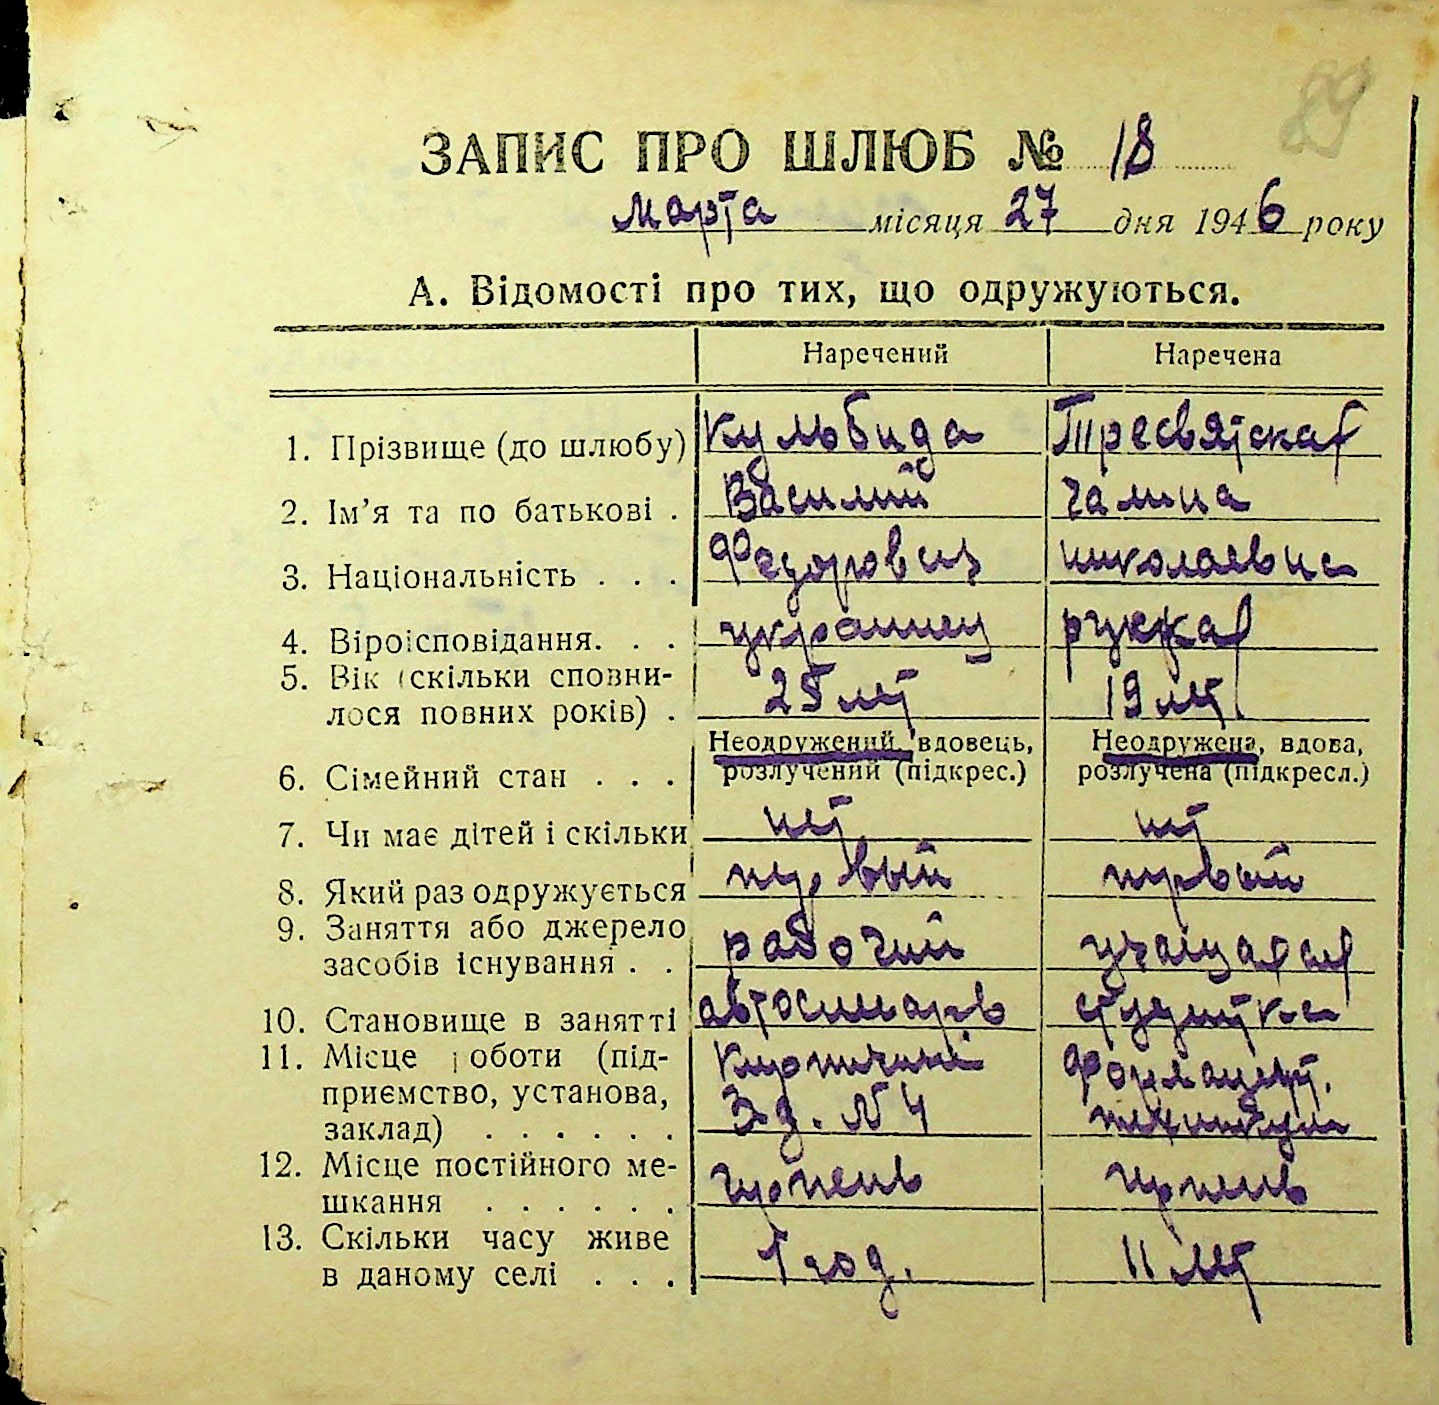 89
ЗАПИС ПРО ШЛЮБ № 18
марта місяця 27 дня 1946 року
А. Відомості про тих, що одружуються.
Наречений Наречена
1. Прізвище (до шлюбу) Кульбида Тресвятская
2. Ім'я та по батькові . Василий галина
3. Національність . . . Федорович николаевна
4. Віроісповідання. . . украинец русская
5. Вік (скільки сповни-
лося повних років) . 25 лет 19 лет
Неодружений, вдовець, Неодружена, вдова,
6. Сімейний стан . . . розлучений (підкрес.) розлучена (підкресл.)
7. Чи має дітей і скільки нет нет
8. Який раз одружується первый первый
9. Заняття або джерело
засобів існування . . рабочий учащаяся
10. Становище в занятті автослесарь студентка
11. Місце роботи (під- Кирпичний Фармацевт.
приємство, установа, Зд. N 4 техникум
заклад) . . . . . .
12. Місце постійного ме-
шкання . . . . . . ирпень ирпень
13. Скільки часу живе
в даному селі . . . 1 год. 11 лет